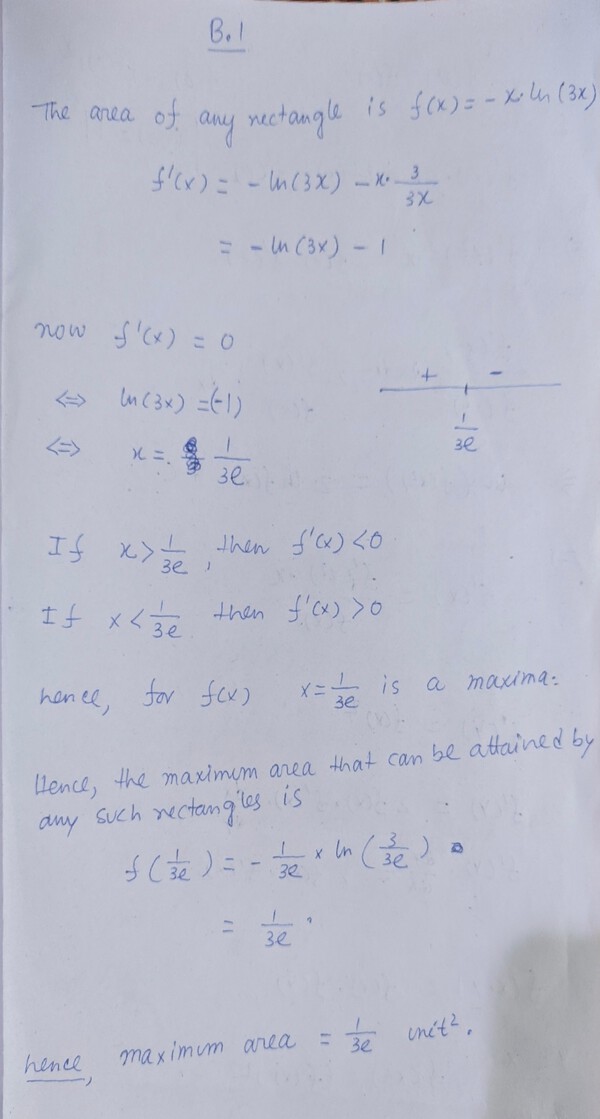 B.1
The area of any rectangle is f(x) = - x· ln(3x)
f'(x) = - ln(3x) - x· 3/3x
= - ln(3x) - 1
now f'(x) = 0
⇔ ln(3x) = (-1)
+ -
1/3e
⇔ x = 1/3e
If x > 1/3e, then f'(x) < 0
If x < 1/3e then f'(x) > 0
hence, for f(x) x = 1/3e is a maxima.
Hence, the maximum area that can be attained by
any such rectangles is
f(1/3e) = - 1/3e × ln(3/3e)
= 1/3e .
hence, maximum area = 1/3e unit².